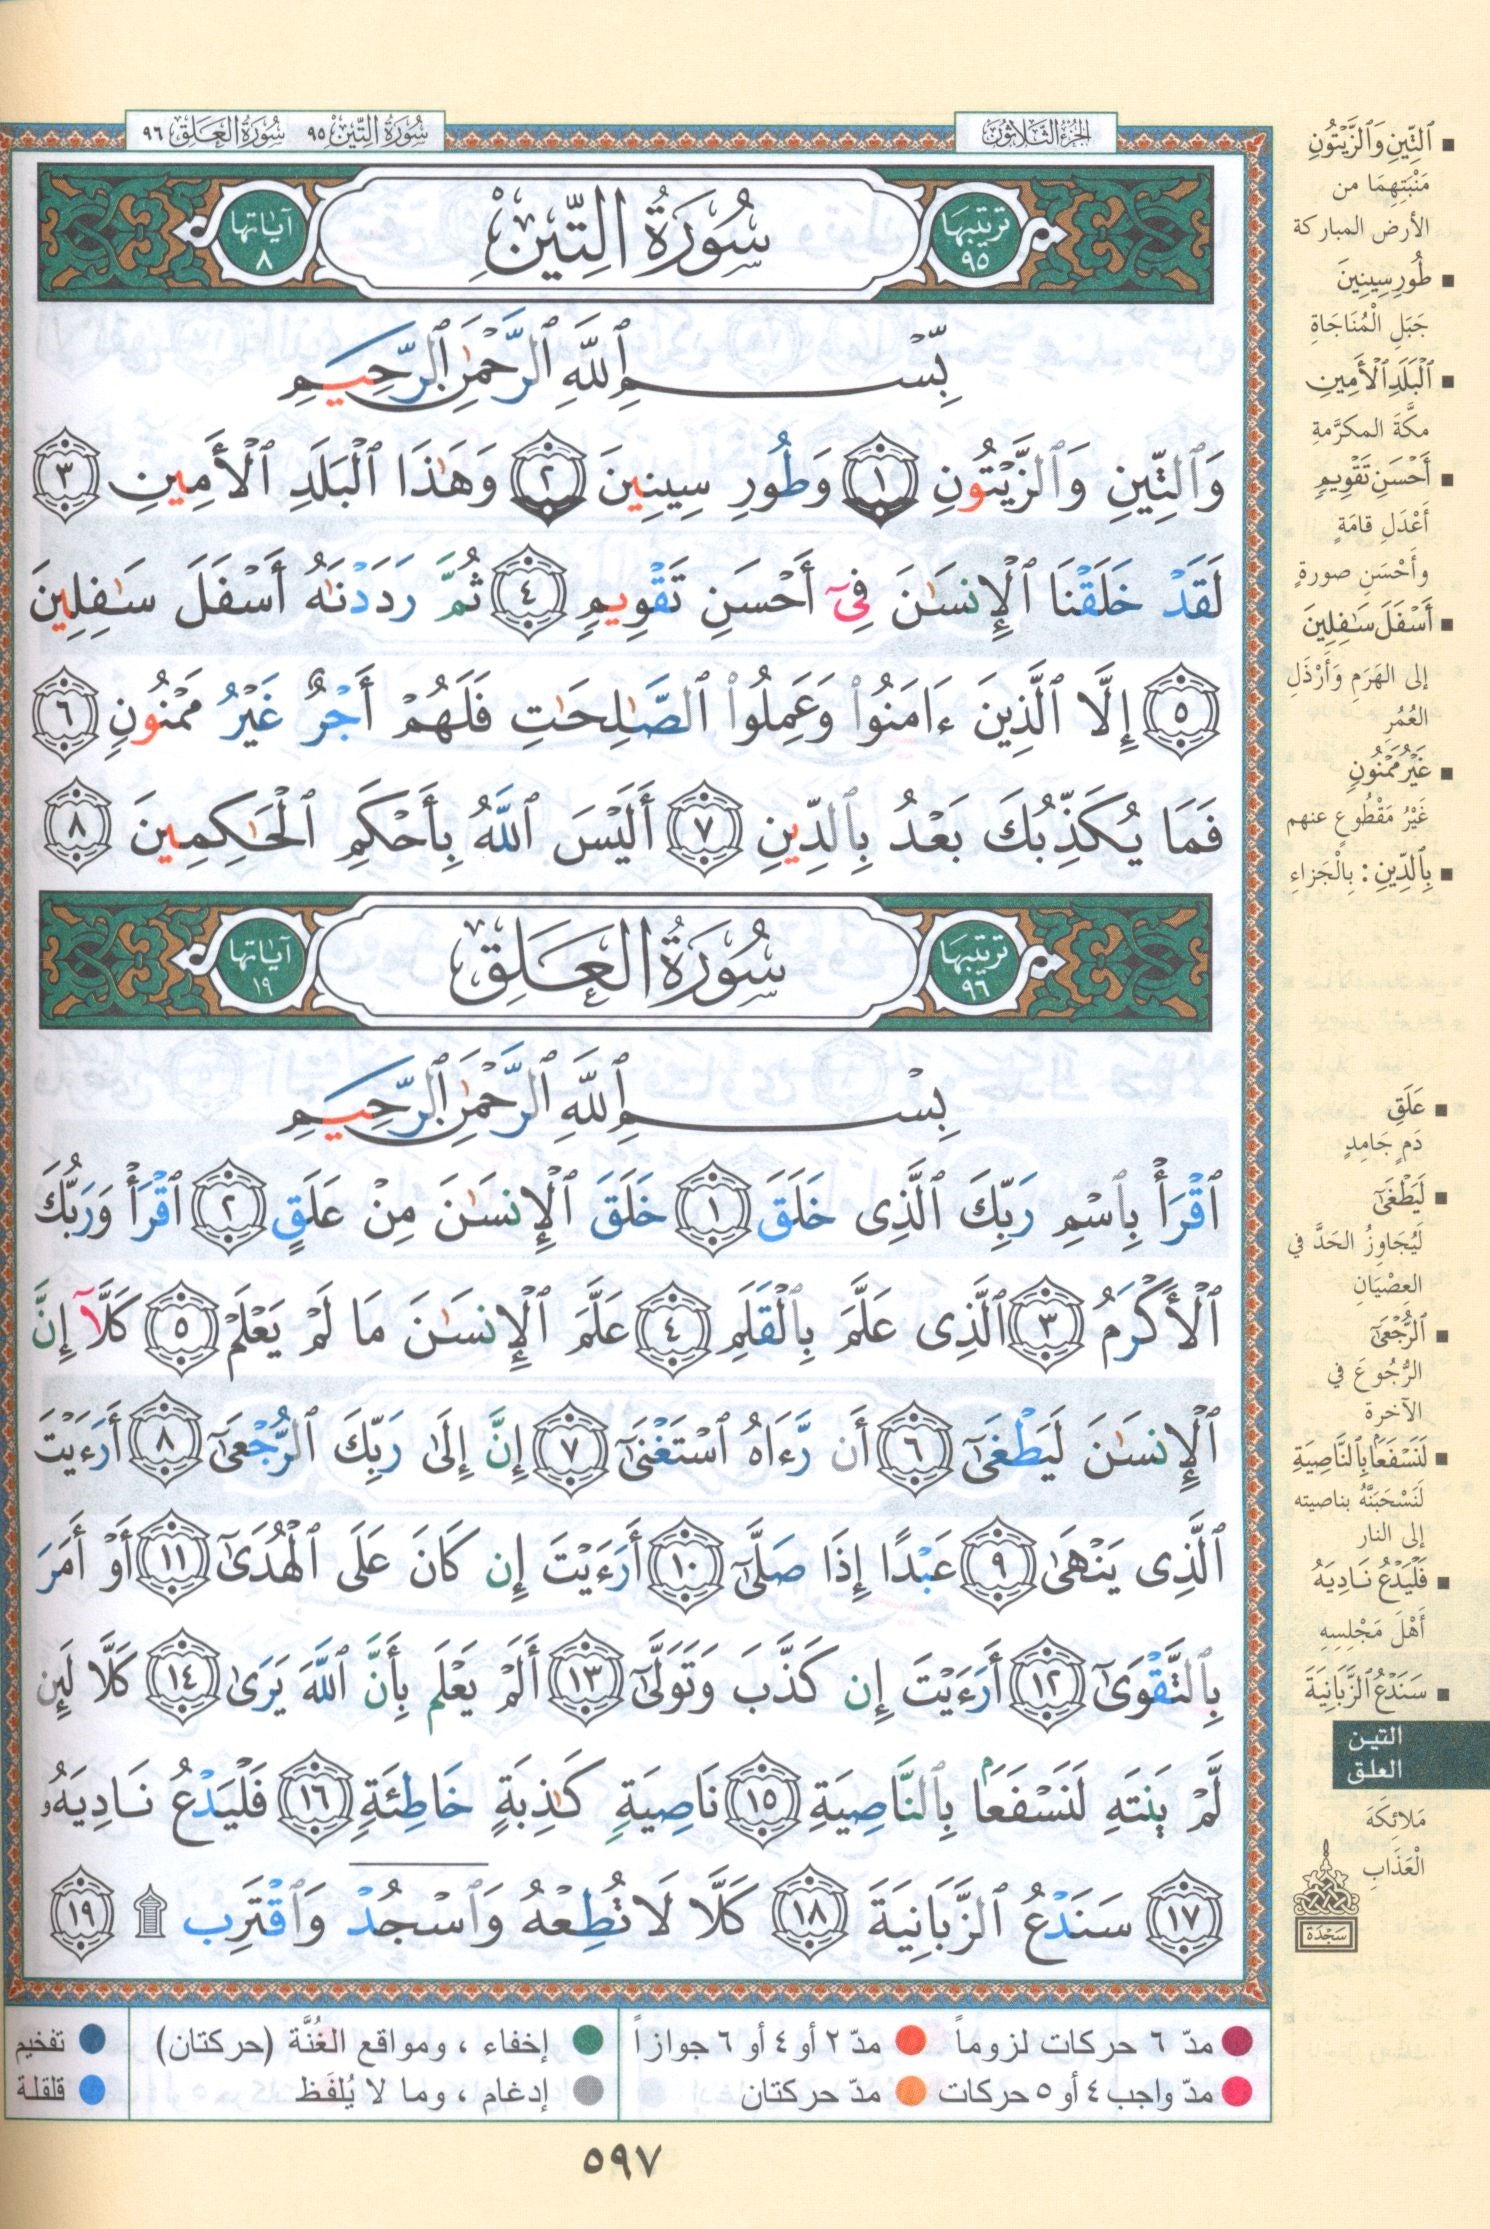 الجزء الثلاثون
سُورَةُ التِّين ٩٥ سُورَةُ العَلَق ٩٦
ترتيبها ٩٥
سُورَةُ التِّينِ
آياتها ٨
بِّسْمِ ٱللَّهِ ٱلرَّحْمَٰنِ ٱلرَّحِيمِ
وَٱلتِّينِ وَٱلزَّيْتُونِ ۝١ وَطُورِ سِينِينَ ۝٢ وَهَٰذَا ٱلْبَلَدِ ٱلْأَمِينِ ۝٣
لَقَدْ خَلَقْنَا ٱلْإِنسَٰنَ فِىٓ أَحْسَنِ تَقْوِيمٍ ۝٤ ثُمَّ رَدَدْنَٰهُ أَسْفَلَ سَٰفِلِينَ
۝٥ إِلَّا ٱلَّذِينَ ءَامَنُوا۟ وَعَمِلُوا۟ ٱلصَّٰلِحَٰتِ فَلَهُمْ أَجْرٌ غَيْرُ مَمْنُونٍ ۝٦
فَمَا يُكَذِّبُكَ بَعْدُ بِٱلدِّينِ ۝٧ أَلَيْسَ ٱللَّهُ بِأَحْكَمِ ٱلْحَٰكِمِينَ ۝٨
ترتيبها ٩٦
سُورَةُ العَلَقِ
آياتها ١٩
بِسْمِ ٱللَّهِ ٱلرَّحْمَٰنِ ٱلرَّحِيمِ
ٱقْرَأْ بِٱسْمِ رَبِّكَ ٱلَّذِى خَلَقَ ۝١ خَلَقَ ٱلْإِنسَٰنَ مِنْ عَلَقٍ ۝٢ ٱقْرَأْ وَرَبُّكَ
ٱلْأَكْرَمُ ۝٣ ٱلَّذِى عَلَّمَ بِٱلْقَلَمِ ۝٤ عَلَّمَ ٱلْإِنسَٰنَ مَا لَمْ يَعْلَمْ ۝٥ كَلَّآ إِنَّ
ٱلْإِنسَٰنَ لَيَطْغَىٰٓ ۝٦ أَن رَّءَاهُ ٱسْتَغْنَىٰٓ ۝٧ إِنَّ إِلَىٰ رَبِّكَ ٱلرُّجْعَىٰٓ ۝٨ أَرَءَيْتَ
ٱلَّذِى يَنْهَىٰ ۝٩ عَبْدًا إِذَا صَلَّىٰٓ ۝١٠ أَرَءَيْتَ إِن كَانَ عَلَى ٱلْهُدَىٰٓ ۝١١ أَوْ أَمَرَ
بِٱلتَّقْوَىٰٓ ۝١٢ أَرَءَيْتَ إِن كَذَّبَ وَتَوَلَّىٰٓ ۝١٣ أَلَمْ يَعْلَم بِأَنَّ ٱللَّهَ يَرَىٰ ۝١٤ كَلَّا لَئِن
لَّمْ يَنتَهِ لَنَسْفَعًۢا بِٱلنَّاصِيَةِ ۝١٥ نَاصِيَةٍ كَٰذِبَةٍ خَاطِئَةٍ ۝١٦ فَلْيَدْعُ نَادِيَهُۥ
۝١٧ سَنَدْعُ ٱلزَّبَانِيَةَ ۝١٨ كَلَّا لَا تُطِعْهُ وَٱسْجُدْ وَٱقْتَرِب ۩ ۝١٩
▪ ٱلتِّينِ وَٱلزَّيْتُونِ
مَنْبَتِهِمَا من
الأرض المباركة
▪ طُورِ سِينِينَ
جَبَلِ الْمُنَاجَاةِ
▪ ٱلْبَلَدِ ٱلْأَمِينِ
مكَّةَ المكرَّمةِ
▪ أَحْسَنِ تَقْوِيمٍ
أَعْدَلِ قامَةٍ
وأَحْسَنِ صورةٍ
▪ أَسْفَلَ سَٰفِلِينَ
إلى الهَرَمِ وَأَرْذَلِ
العُمُرِ
▪ غَيْرُ مَمْنُونٍ
غَيْرُ مَقْطُوعٍ عنهم
▪ بِالدِّينِ : بِالْجَزاءِ
▪ عَلَقٍ
دَمٍ جَامِدٍ
▪ لَيَطْغَىٰٓ
لَيُجَاوِزُ الحَدَّ في
العِصْيَانِ
▪ ٱلرُّجْعَىٰٓ
الرُّجُوعَ في
الآخرة
▪ لَنَسْفَعًۢا بِٱلنَّاصِيَةِ
لَنَسْحَبَنَّهُ بناصيته
إلى النار
▪ فَلْيَدْعُ نَادِيَهُ
أَهْلَ مَجْلِسِهِ
▪ سَنَدْعُ ٱلزَّبَانِيَةَ
التين
العلق
مَلائِكَةَ
الْعَذَابِ
سَجْدَة
مدّ ٦ حركات لزوماً ● مدّ ٢ أو ٤ أو ٦ جوازاً ● إخفاء ، ومواقع الغُنَّة (حركتان) ● تفخيم
مدّ واجب ٤ أو ٥ حركات ● مدّ حركتان ● إدغام ، وما لا يُلفَظ ● قلقلة
٥٩٧